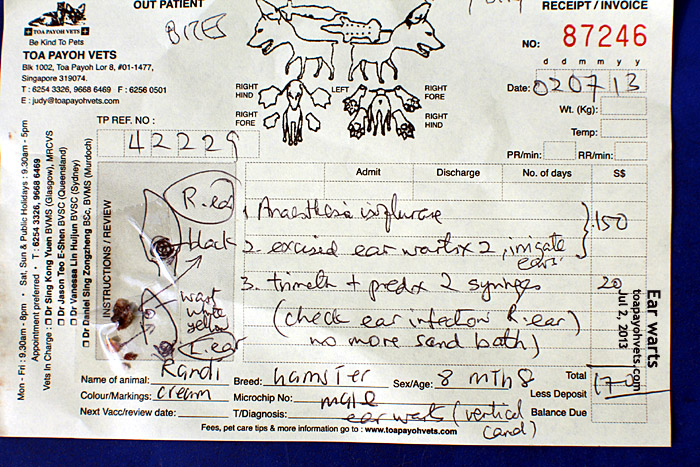 OUT PATIENT
RECEIPT / INVOICE
TOA PAYOH VETS
Be Kind To Pets
TOA PAYOH VETS
Blk 1002, Toa Payoh Lor 8, #01-1477,
Singapore 319074.
T : 6254 3326, 9668 6469 F : 6256 0501
E : judy@toapayohvets.com
BITES
NO: 87246
d d m m y y
Date: 020713
Wt. (Kg):
Temp:
PR/min: RR/min:
RIGHT HIND
LEFT
RIGHT FORE
RIGHT FORE
RIGHT HIND
TP REF. NO :
42229
Admit Discharge No. of days S$
R. ear
black
wart white yellow
L. ear
INSTRUCTIONS / REVIEW
1. Anaesthesia isoflurane
2. excised ear warts x 2, irrigate ears.
150
3. trimeth + pred x 2 syringes 20
(check ear infection R. ear)
no more sand bath)
Mon - Fri : 9.30am - 8pm • Sat, Sun & Public Holidays : 9.30am - 5pm
Appointment preferred • T : 6254 3326, 9668 6469
Vets In Charge : Dr Sing Kong Yuen BVMS (Glasgow), MRCVS
Dr Jason Teo E-Shen BVSC (Queensland)
Dr Vanessa Lin Huijun BVSC (Sydney)
Dr Daniel Sing Zongsheng BSc, BVMS (Murdoch)
Name of animal: Randi Breed: hamster Sex/Age: 8 mths Total 170
Less Deposit
Colour/Markings: cream Microchip No: male
Next Vacc/review date: T/Diagnosis: ear warts (vertical canal) Balance Due
Fees, pet care tips & more information go to : www.toapayohvets.com
Ear warts
toapayohvets.com
Jul 2, 2013